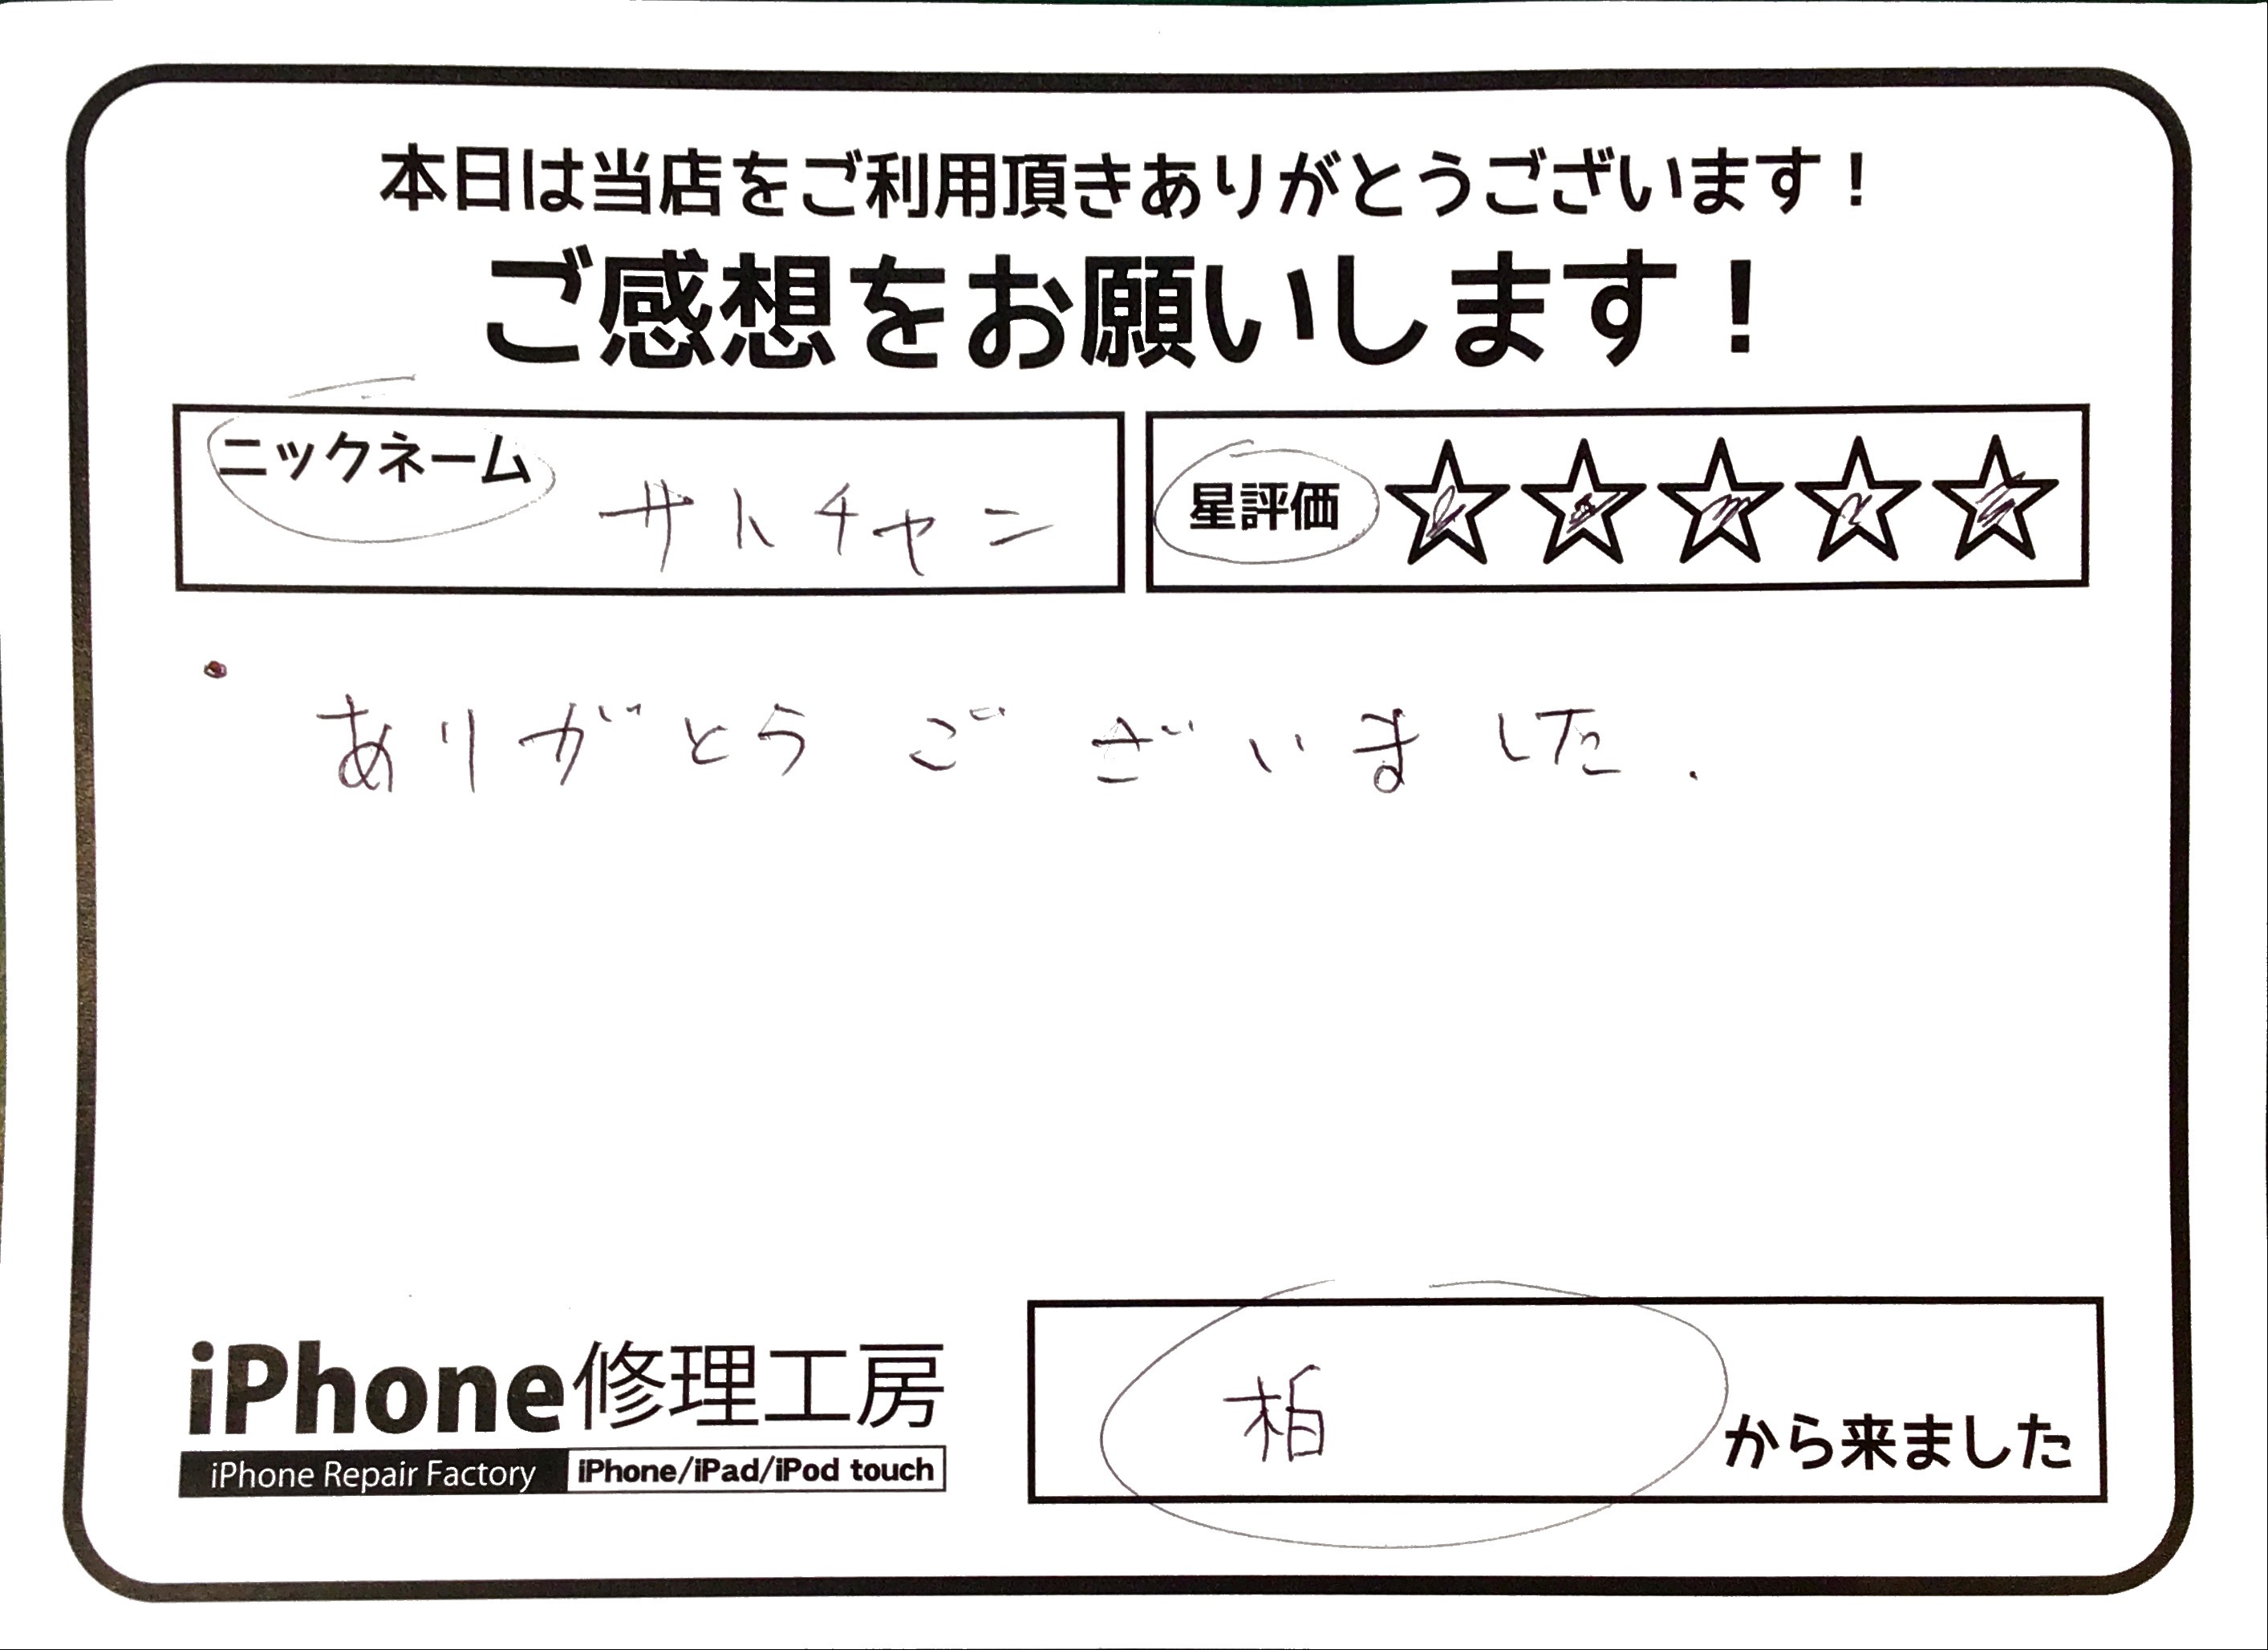 本日は当店をご利用頂きありがとうございます！
ご感想をお願いします！
ニックネーム サトチャン
星評価 ☆☆☆☆☆
・ありがとうございました.
iPhone修理工房
iPhone Repair Factory iPhone/iPad/iPod touch
柏から来ました